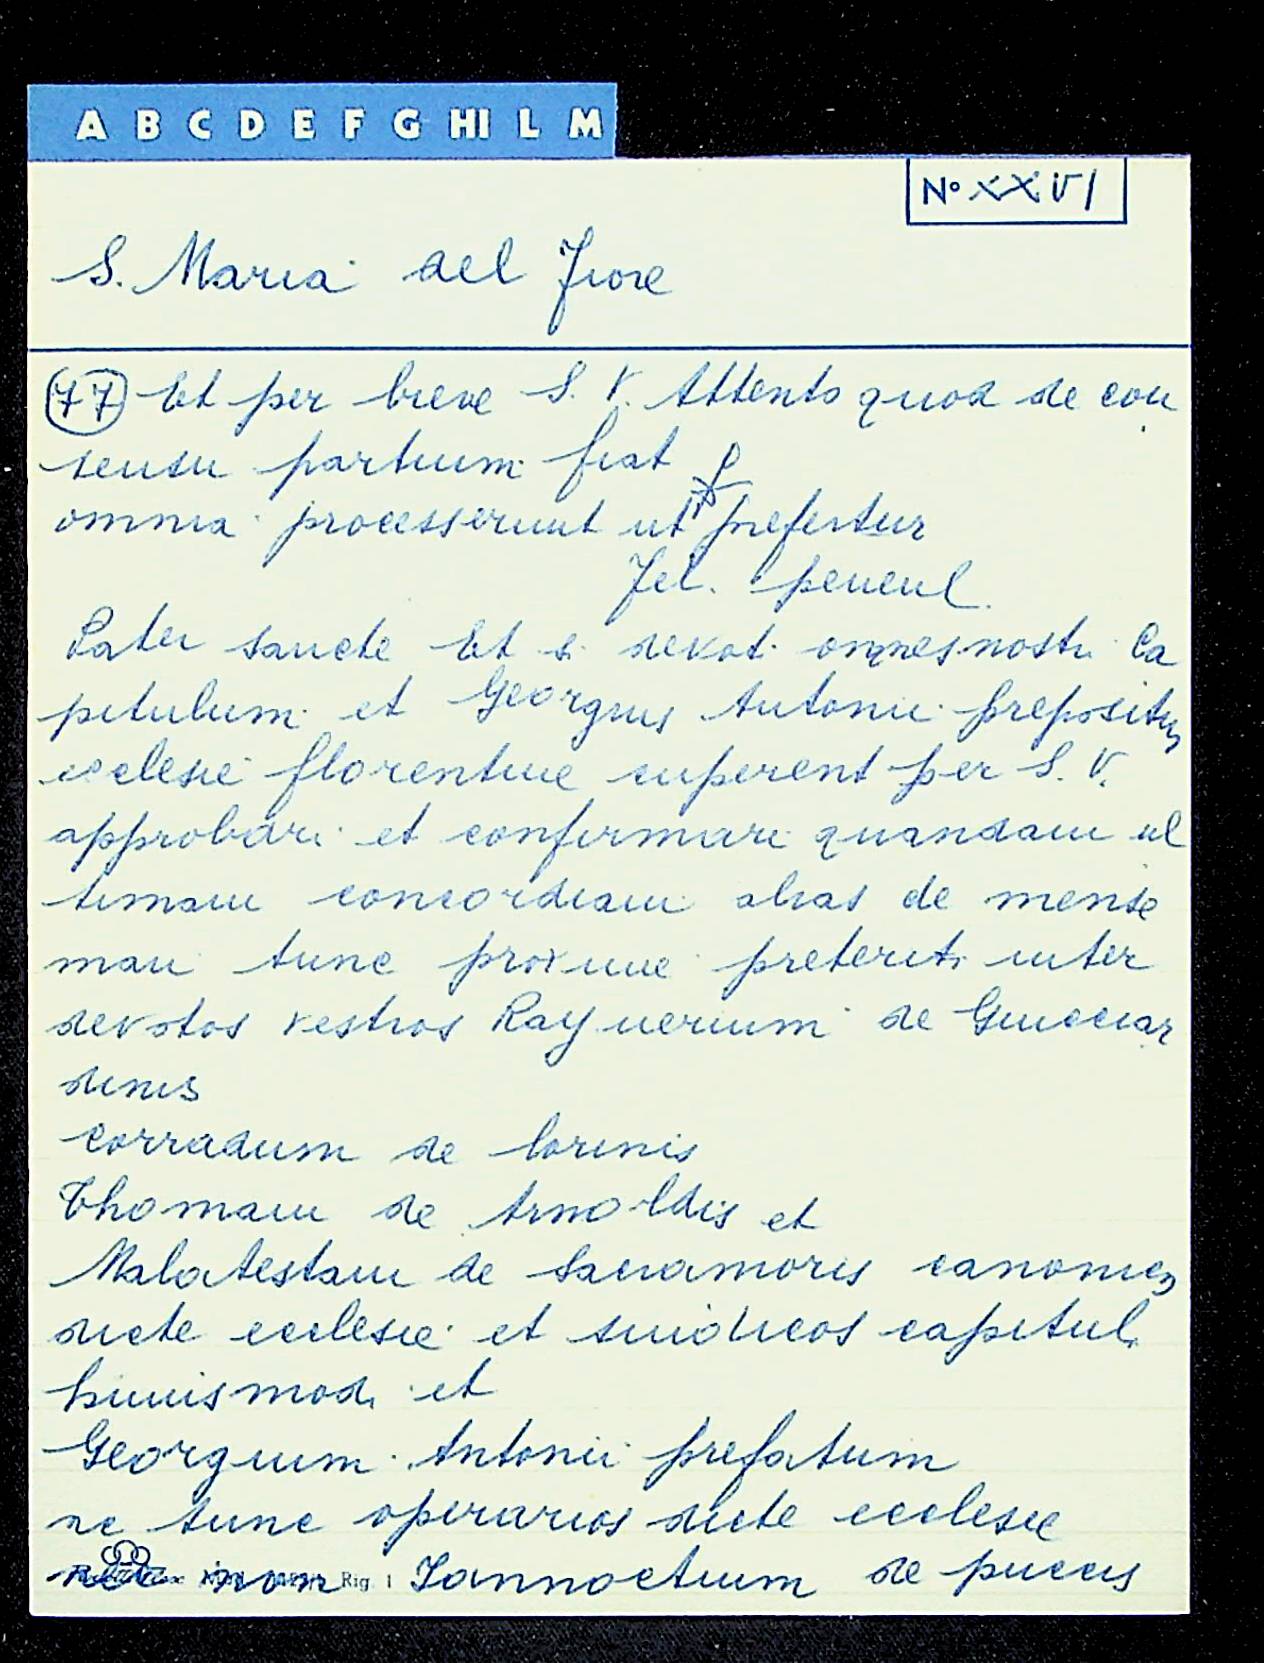 A B C D E F G HI L M
N° XXVI
S. Maria del Fiore
77 Et per breve S. V. Attento quod de con
sensu partium fiat
omnia processerunt ut prefertur
Fel.
Pater sancte Et si devot. nostri Ca
pitulum et Georgius Antonii prepositus
ecclesie florentine cuperent per S. V.
approbari et confirmari quandam ul
timam concordiam alias de mense
maii tunc proxime preteriti inter
devotos vestros Raynerium de Guicciar
dinis
Corradum de
Thomam de Arnoldis et
Malatestam de Sacramoris canonicos
dicte ecclesie et sindicos capituli
huiusmodi et
Georgium Antonii prefatum
ac tunc operarios dicte ecclesie
nec non Iannoctium de puccis
Rig. 1